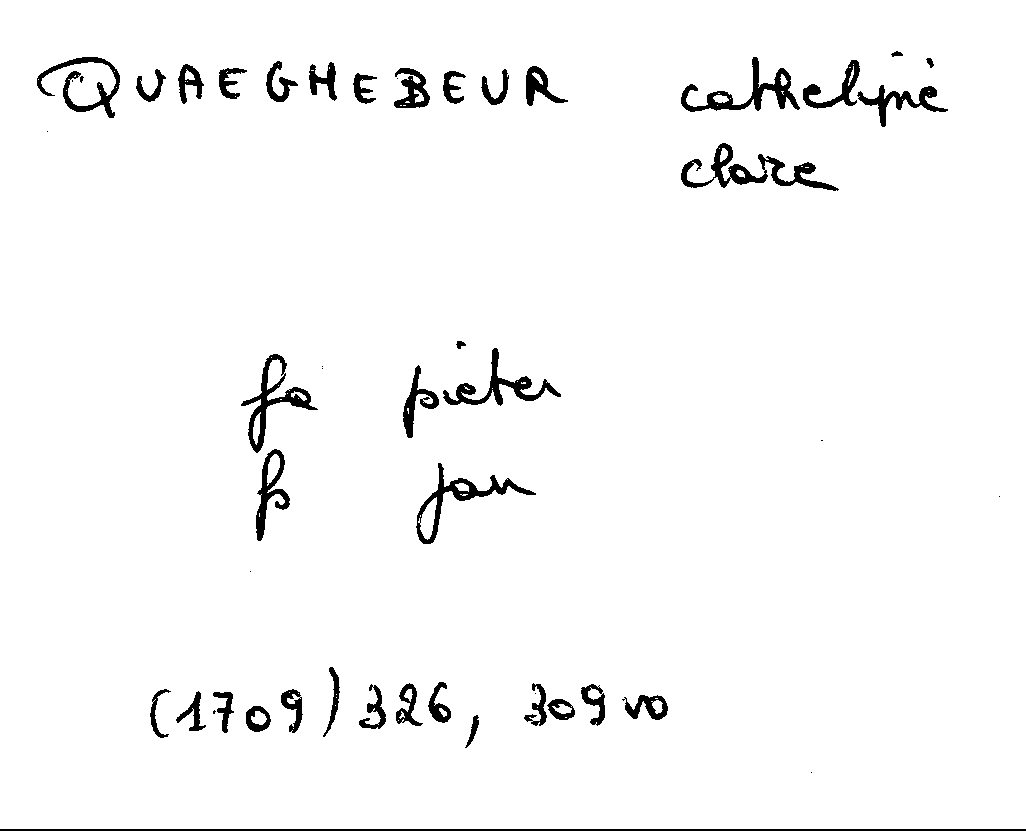 QUAEGHEBEUR cathelijne
clare
fa pieter
fs jan
(1709) 326, 309 vo